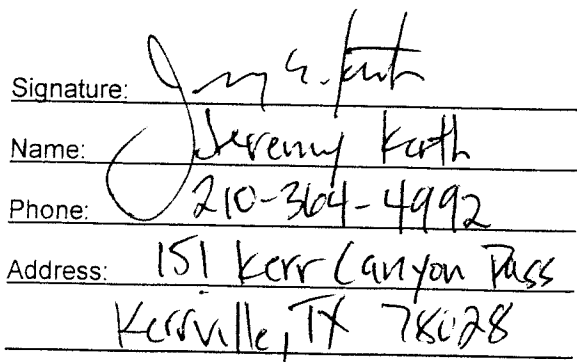 Signature: Jeremy G. Kath
Name: Jeremy Kath
Phone: 210-364-4992
Address: 151 Kerr Canyon Pass
Kerrville, TX 78028